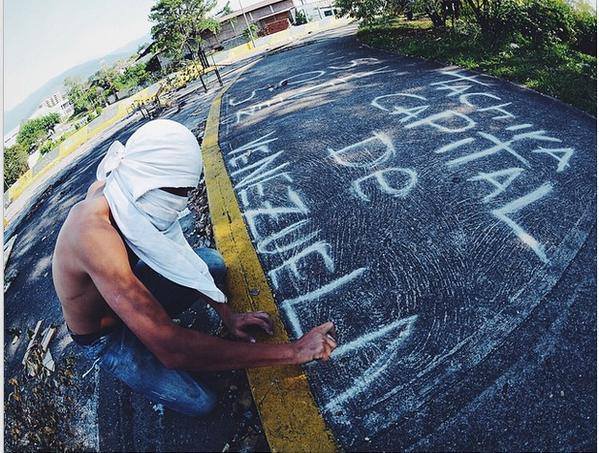 TACHIRA
CAPITAL
DE
VENEZUELA